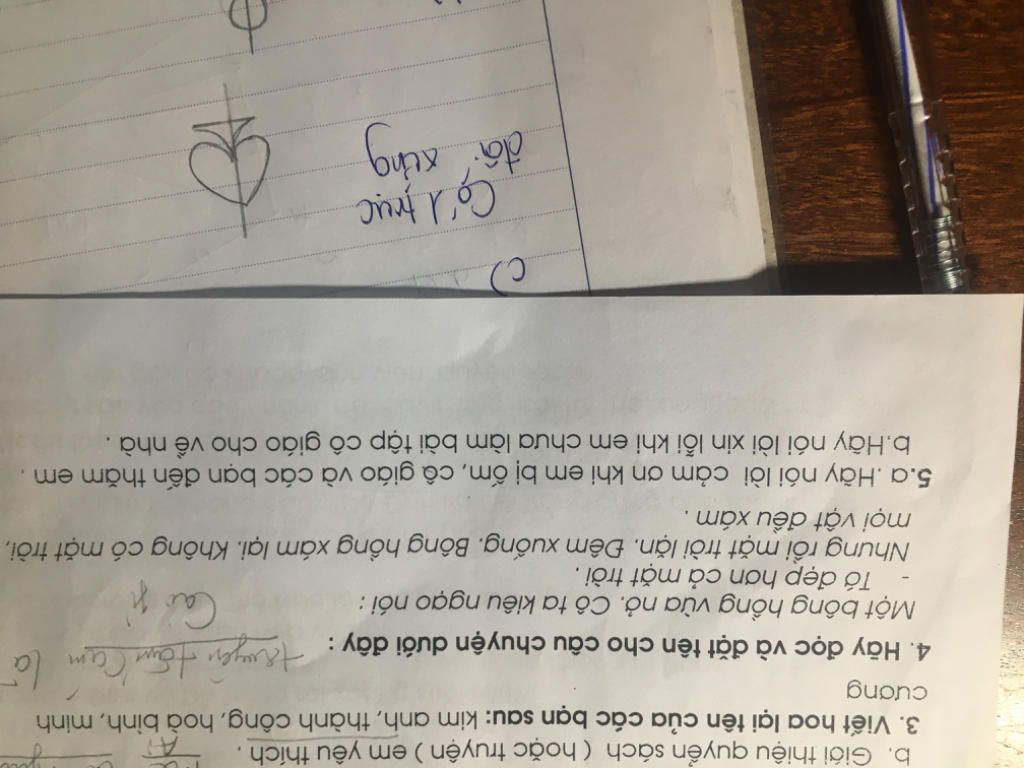 b. Giới thiệu quyển sách ( hoặc truyện ) em yêu thích .
3. Viết hoa lại tên của các bạn sau: kim anh, thành công, hoà bình, minh
cương
truyện tấm Cám là
4. Hãy đọc và đặt tên cho câu chuyện dưới đây :
Một bông hồng vừa nở. Cô ta kiêu ngạo nói :
- Tớ đẹp hơn cả mặt trời .
Nhưng rồi mặt trời lặn. Đêm xuống. Bông hồng xám lại. Không có mặt trời,
mọi vật đều xám .
5.a .Hãy nói lời cảm ơn khi em bị ốm, cô giáo và các bạn đến thăm em .
b.Hãy nói lời xin lỗi khi em chưa làm bài tập cô giáo cho về nhà .
c)
Có 1 trục
đối xứng